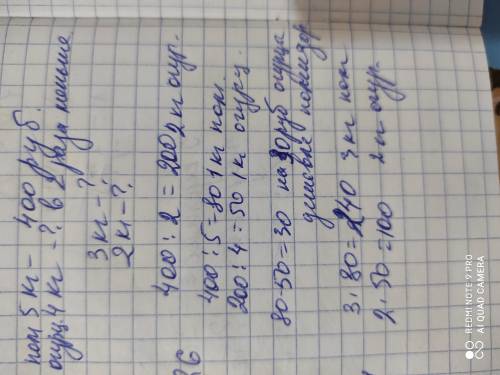 пом 5 кг - 400 руб.
огур. 4 кг - ? в 2 раза меньше
3 кг - ?
2 кг - ?
26
400 : 2 = 200 2 кг огур.
400 : 5 = 80 1 кг пом.
200 : 4 = 50 1 кг огурц.
80-50=30 на 30 руб огурцы
дешевле помидор
3 · 80 = 240 3 кг пом
2 · 50 = 100 2 кг огур.
REDMI NOTE 9 PRO
AI QUAD CAMERA